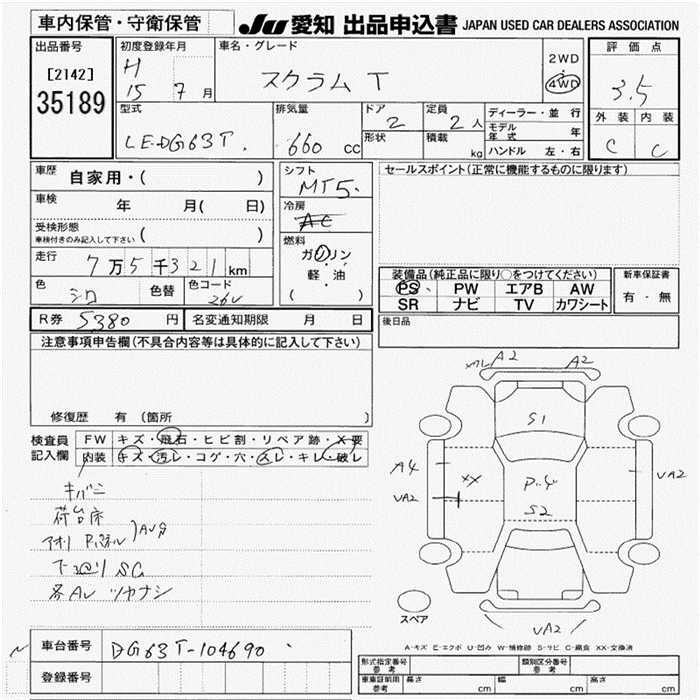 車内保管・守衛保管
JU 愛知 出品申込書 JAPAN USED CAR DEALERS ASSOCIATION
出品番号
[2142]
35189
初度登録年月
H
15 7 月
車名・グレード
スクラム T
2WD
4WD
評価点
3.5
型式
LE-DG63T
排気量
660 cc
ドア
2
形状
定員
2 人
積載
kg
ディーラー・並行
モデル年式 年
ハンドル 左・右
外装 内装
C C
車歴 自家用・( )
車検 年 月( 日)
受検形態
車検付きのみ記入して下さい ( )
走行 7万5千321km
色 シロ 色替 色コード 26V
シフト
MT5
冷房
AC
燃料
ガソリン
軽・油
( )
セールスポイント(正常に機能するものに限ります)
装備品(純正品に限り○をつけてください)
PS PW エアB AW
SR ナビ TV カワシート
新車保証書
有・無
R券 5380 円 名変通知期限 月 日
後日品
注意事項申告欄(不具合内容等は具体的に記入して下さい)
修復歴 有 (箇所
検査員記入欄
FW キズ・飛石・ヒビ割・リペア跡・X要
内装 キズ・汚レ・コゲ・穴・スレ・キレ・破レ
キバミ
荷台床
アオリ Pパネル
下廻り SG
各AU ツヤナシ
A2 A2
S1
A4
XX
P-4
VA2
VA2
S2
VA2
スペア
A-キズ E-エクボ U-凹み W-補修跡 S-サビ C-腐食 XX-交換済
車台番号 DG63T-104690
登録番号
形式指定番号 参考
類別区分番号 参考
車庫証明用 参考 長さ cm 幅 cm 高さ cm